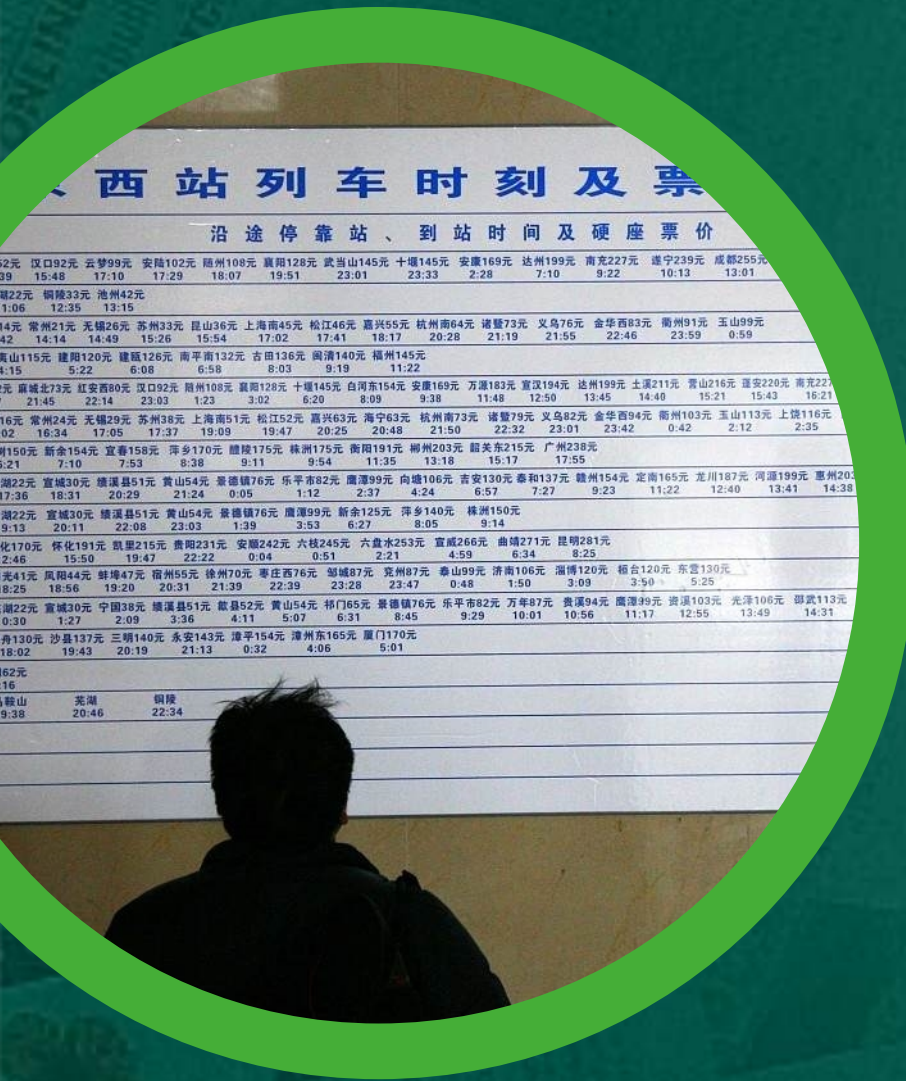 西站列车时刻及票
沿途停靠站、到站时间及硬座票价
52元 汉口92元 云梦99元 安陆102元 随州108元 襄阳128元 武当山145元 十堰145元 安康169元 达州199元 南充227元 遂宁239元 成都255元
39 15:48 17:10 17:29 18:07 19:51 23:01 23:33 2:28 7:10 9:22 10:13 13:01
湖22元 铜陵33元 池州42元
1:06 12:35 13:15
14元 常州21元 无锡26元 苏州33元 昆山36元 上海南45元 松江46元 嘉兴55元 杭州南64元 诸暨73元 义乌76元 金华西83元 衢州91元 玉山99元
42 14:14 14:49 15:26 15:54 17:02 17:41 18:17 20:28 21:19 21:55 22:46 23:59 0:59
夷山115元 建阳120元 建瓯126元 南平南132元 古田136元 闽清140元 福州145元
4:15 5:22 6:08 6:58 8:03 9:19 11:22
元 麻城北73元 红安西80元 汉口92元 随州108元 襄阳128元 十堰145元 白河东154元 安康169元 万源183元 宣汉194元 达州199元 土溪211元 营山216元 蓬安220元 南充227
7 21:45 22:14 23:03 1:23 3:02 6:20 8:09 9:38 11:48 12:50 13:45 14:40 15:21 15:43 16:21
16元 常州24元 无锡29元 苏州38元 上海南51元 松江52元 嘉兴63元 海宁63元 杭州南73元 诸暨79元 义乌82元 金华西94元 衢州103元 玉山113元 上饶116元
02 16:34 17:05 17:37 19:09 19:47 20:25 20:48 21:50 22:32 23:01 23:42 0:42 2:12 2:35
150元 新余154元 宜春158元 萍乡170元 醴陵175元 株洲175元 衡阳191元 郴州203元 韶关东215元 广州238元
5:21 7:10 7:53 8:38 9:11 9:54 11:35 13:18 15:17 17:55
湖22元 宣城30元 绩溪县51元 黄山54元 景德镇76元 乐平市82元 鹰潭99元 向塘106元 吉安130元 泰和137元 赣州154元 定南165元 龙川187元 河源199元 惠州203
17:36 18:31 20:29 21:24 0:05 1:12 2:37 4:24 6:57 7:27 9:23 11:22 12:40 13:41 14:38
湖22元 宣城30元 绩溪县51元 黄山54元 景德镇76元 鹰潭99元 新余125元 萍乡140元 株洲150元
9:13 20:11 22:08 23:03 1:39 3:53 6:27 8:05 9:14
化170元 怀化191元 凯里215元 贵阳231元 安顺242元 六枝245元 六盘水253元 宣威266元 曲靖271元 昆明281元
2:46 15:50 19:47 22:22 0:04 0:51 2:21 4:59 6:34 8:25
光41元 凤阳44元 蚌埠47元 宿州55元 徐州70元 枣庄西76元 邹城87元 兖州87元 泰山99元 济南106元 淄博120元 桓台120元 东营130元
8:25 18:56 19:20 20:31 21:39 22:39 23:28 23:47 0:48 1:50 3:09 3:50 5:25
湖22元 宣城30元 宁国38元 绩溪县51元 歙县52元 黄山54元 祁门65元 景德镇76元 乐平市82元 万年87元 贵溪94元 鹰潭99元 资溪103元 光泽106元 邵武113元
0:30 1:27 2:09 3:36 4:11 5:07 6:31 7:45 9:29 10:01 10:56 11:17 12:55 13:49 14:31
舟130元 沙县137元 三明140元 永安143元 漳平154元 漳州东165元 厦门170元
18:02 19:43 20:19 21:13 0:32 4:06 5:01
62元
16
鞍山 芜湖 铜陵
9:38 20:46 22:34